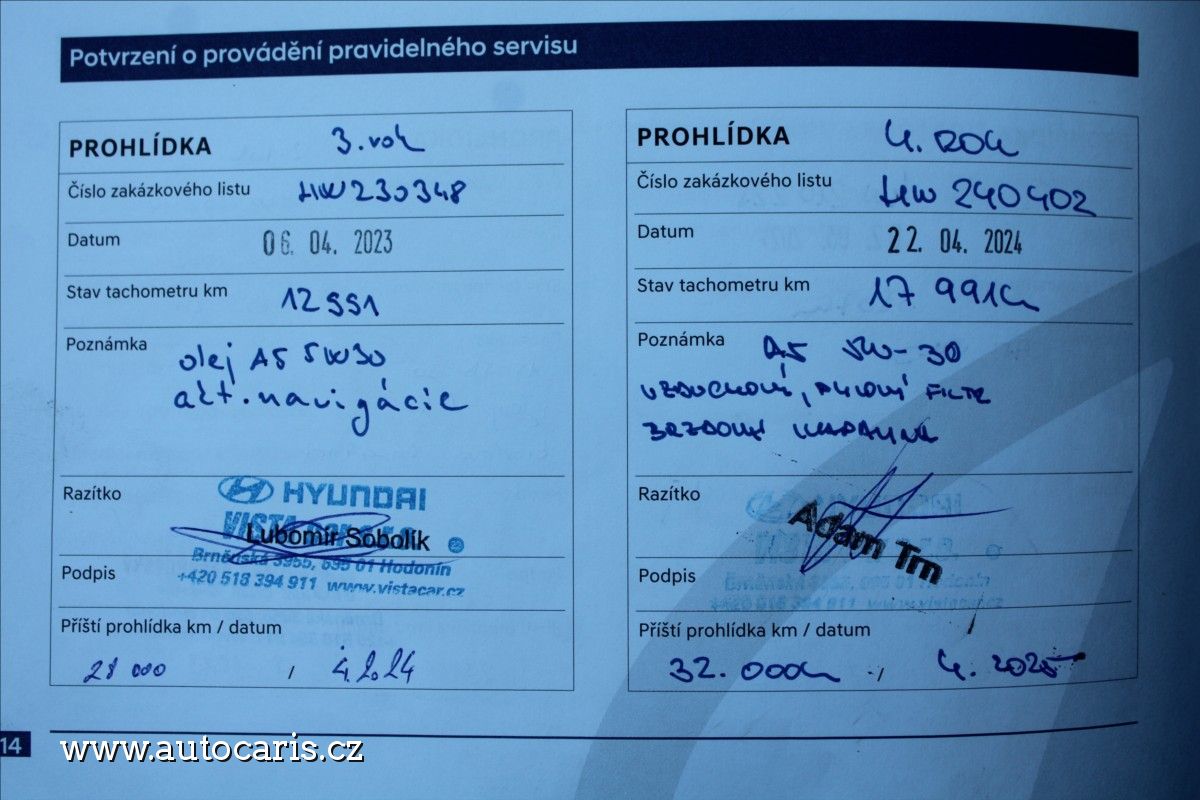 Potvrzení o provádění pravidelného servisu
PROHLÍDKA 3. rok
Číslo zakázkového listu HW230348
Datum 06. 04. 2023
Stav tachometru km 12991
Poznámka olej A5 5W30
akt. navigácie
Razítko HYUNDAI
VISTA
Lubomír Sobolík
Brněnská 3955, 695 01 Hodonín
Podpis +420 518 394 911 www.vistacar.cz
Příští prohlídka km / datum
28 000 / 4.2024
PROHLÍDKA 4. ROK
Číslo zakázkového listu HW 240402
Datum 22. 04. 2024
Stav tachometru km 17 991
Poznámka A5 5W-30
VZDUCHOVÝ, PYLOVÝ FILTR
BRZDOVÁ KAPALINA
Razítko
Adam Trn
Podpis
Příští prohlídka km / datum
32.000 / 4. 2025
14
www.autocaris.cz